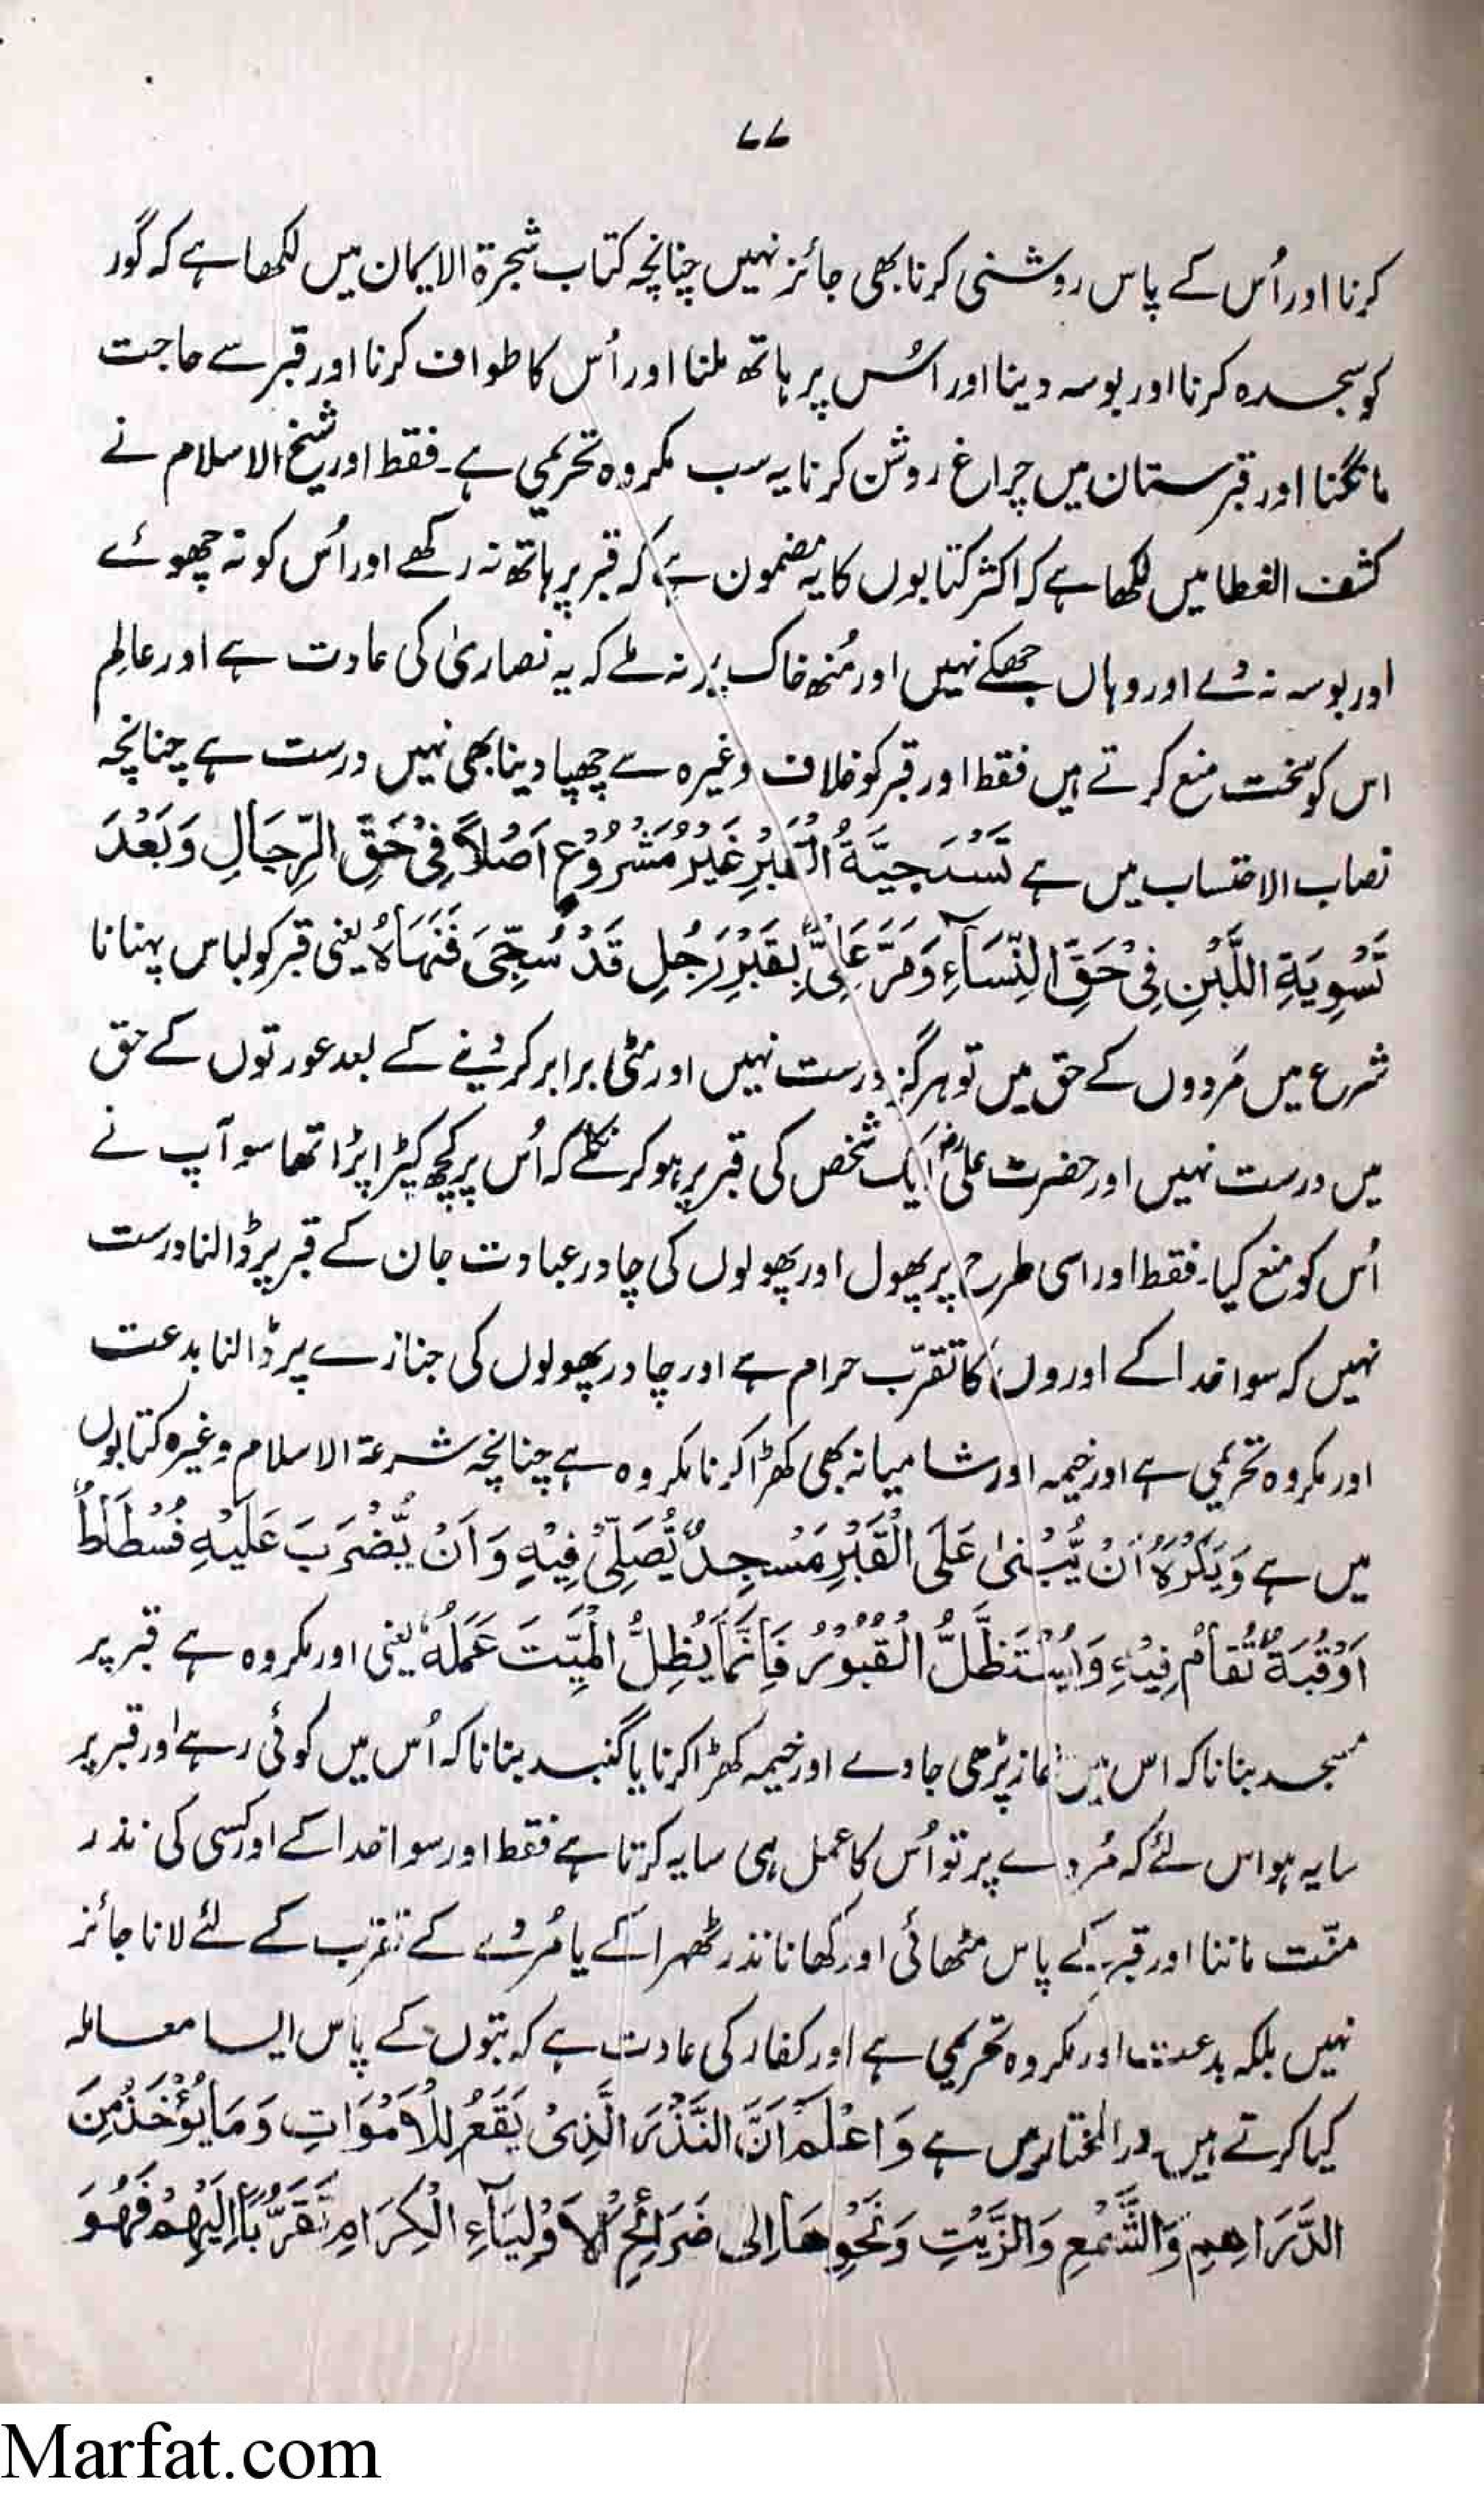 ۷۷
کرنا اور اُس کے پاس روشنی کرنا بھی جائز نہیں چنانچہ کتاب شجرۃ الایمان میں لکھا ہے کہ گور
کو سجدہ کرنا اور بوسہ دینا اور اس پر ہاتھ ملنا اور اُس کا طواف کرنا اور قبر سے حاجت
مانگنا اور قبرستان میں چراغ روشن کرنا یہ سب مکروہ تحریمی ہے۔ فقط اور شیخ الاسلام نے
کشف الغطا میں لکھا ہے کہ اکثر کتابوں کا یہ مضمون ہے کہ قبر پر ہاتھ نہ رکھے اور اُس کو نہ چھوئے
اور بوسہ نہ دے اور وہاں جھکے نہیں اور مُنھ خاک پر نہ ملے کہ یہ نصاریٰ کی عادت ہے اور عالِم
اس کو سخت منع کرتے ہیں فقط اور قبر کو غلاف وغیرہ سے چھپا دینا بھی نہیں درست ہے چنانچہ
نصاب الاحتساب میں ہے تَسْدَجِیَّةُ الْقَبْرِ غَیْرُ مَشْرُوْعٍ اَصْلًا فِیْ حَقِّ الرِّجَالِ وَبَعْدَ
تَسْوِیَةِ اللَّبْنِ فِیْ حَقِّ النِّسَآءِ وَمَرَّ عَلِیٌّ بِقَبْرِ رَجُلٍ قَدْ سُجِّیَ فَنَهَاهُ یعنی قبر کو لباس پہنانا
شرع میں مَردوں کے حق میں تو ہرگز درست نہیں اور مٹی برابر کر دینے کے بعد عورتوں کے حق
میں درست نہیں اور حضرت علیؓ ایک شخص کی قبر پر ہو کر نکلے کہ اُس پر کچھ کپڑا پڑا تھا سو آپ نے
اُس کو منع کیا۔ فقط اور اسی طرح پر پھول اور پھولوں کی چادر عبادت جان کے قبر پر ڈالنا درست
نہیں کہ سوا خدا کے اوروں کا تقرّب حرام ہے اور چادر پھولوں کی جنازے پر ڈالنا بدعت
اور مکروہ تحریمی ہے اور خیمہ اور شامیانہ بھی کھڑا کرنا مکروہ ہے چنانچہ شرعۃ الاسلام وغیرہ کتابوں
میں ہے وَیَکْرُهُ اَنْ یُّبْنیٰ عَلَی الْقَبْرِ مَسْجِدٌ یُّصَلّٰی فِیْهِ وَاَنْ یُّضْرَبَ عَلَیْهِ فُسْطَاطٌ
اَوْ قُبَةٌ تُقَامُ فِیْهِ وَیُسْتَظَلُّ الْقُبُوْرُ فَاِنَّمَا یُظِلُّ الْمَیِّتَ عَمَلُهٗ یعنی اور مکروہ ہے قبر پر
مسجد بنانا کہ اس میں نماز پڑھی جاوے اور خیمہ کھڑا کرنا یا گنبد بنانا کہ اُس میں کوئی رہے اور قبر پر
سایہ ہو اس لئے کہ مُردے پر تو اُس کا عمل ہی سایہ کرتا ہے فقط اور سوا خدا کے اور کسی کی نذر
منّت ماننا اور قبر کے پاس مٹھائی اور کھانا نذر ٹھہرا کے یا مُردے کے تقرب کے لئے لانا جائز
نہیں بلکہ بدعت اور مکروہ تحریمی ہے اور کفار کی عادت ہے کہ بتوں کے پاس ایسا معاملہ
کیا کرتے ہیں۔ در المختار میں ہے وَاعْلَمْ اَنَّ النَّذْرَ الَّذِیْ یَقَعُ لِلْاَمْوَاتِ وَمَا یُؤْخَذُ مِنَ
الدَّرَاهِمِ وَالشَّمْعِ وَالزَّیْتِ وَنَحْوِهَا اِلٰی ضَرَائِحِ الْاَوْلِیَآءِ الْکِرَامِ تَقَرُّبًا اِلَیْهِمْ فَهُوَ
Marfat.com